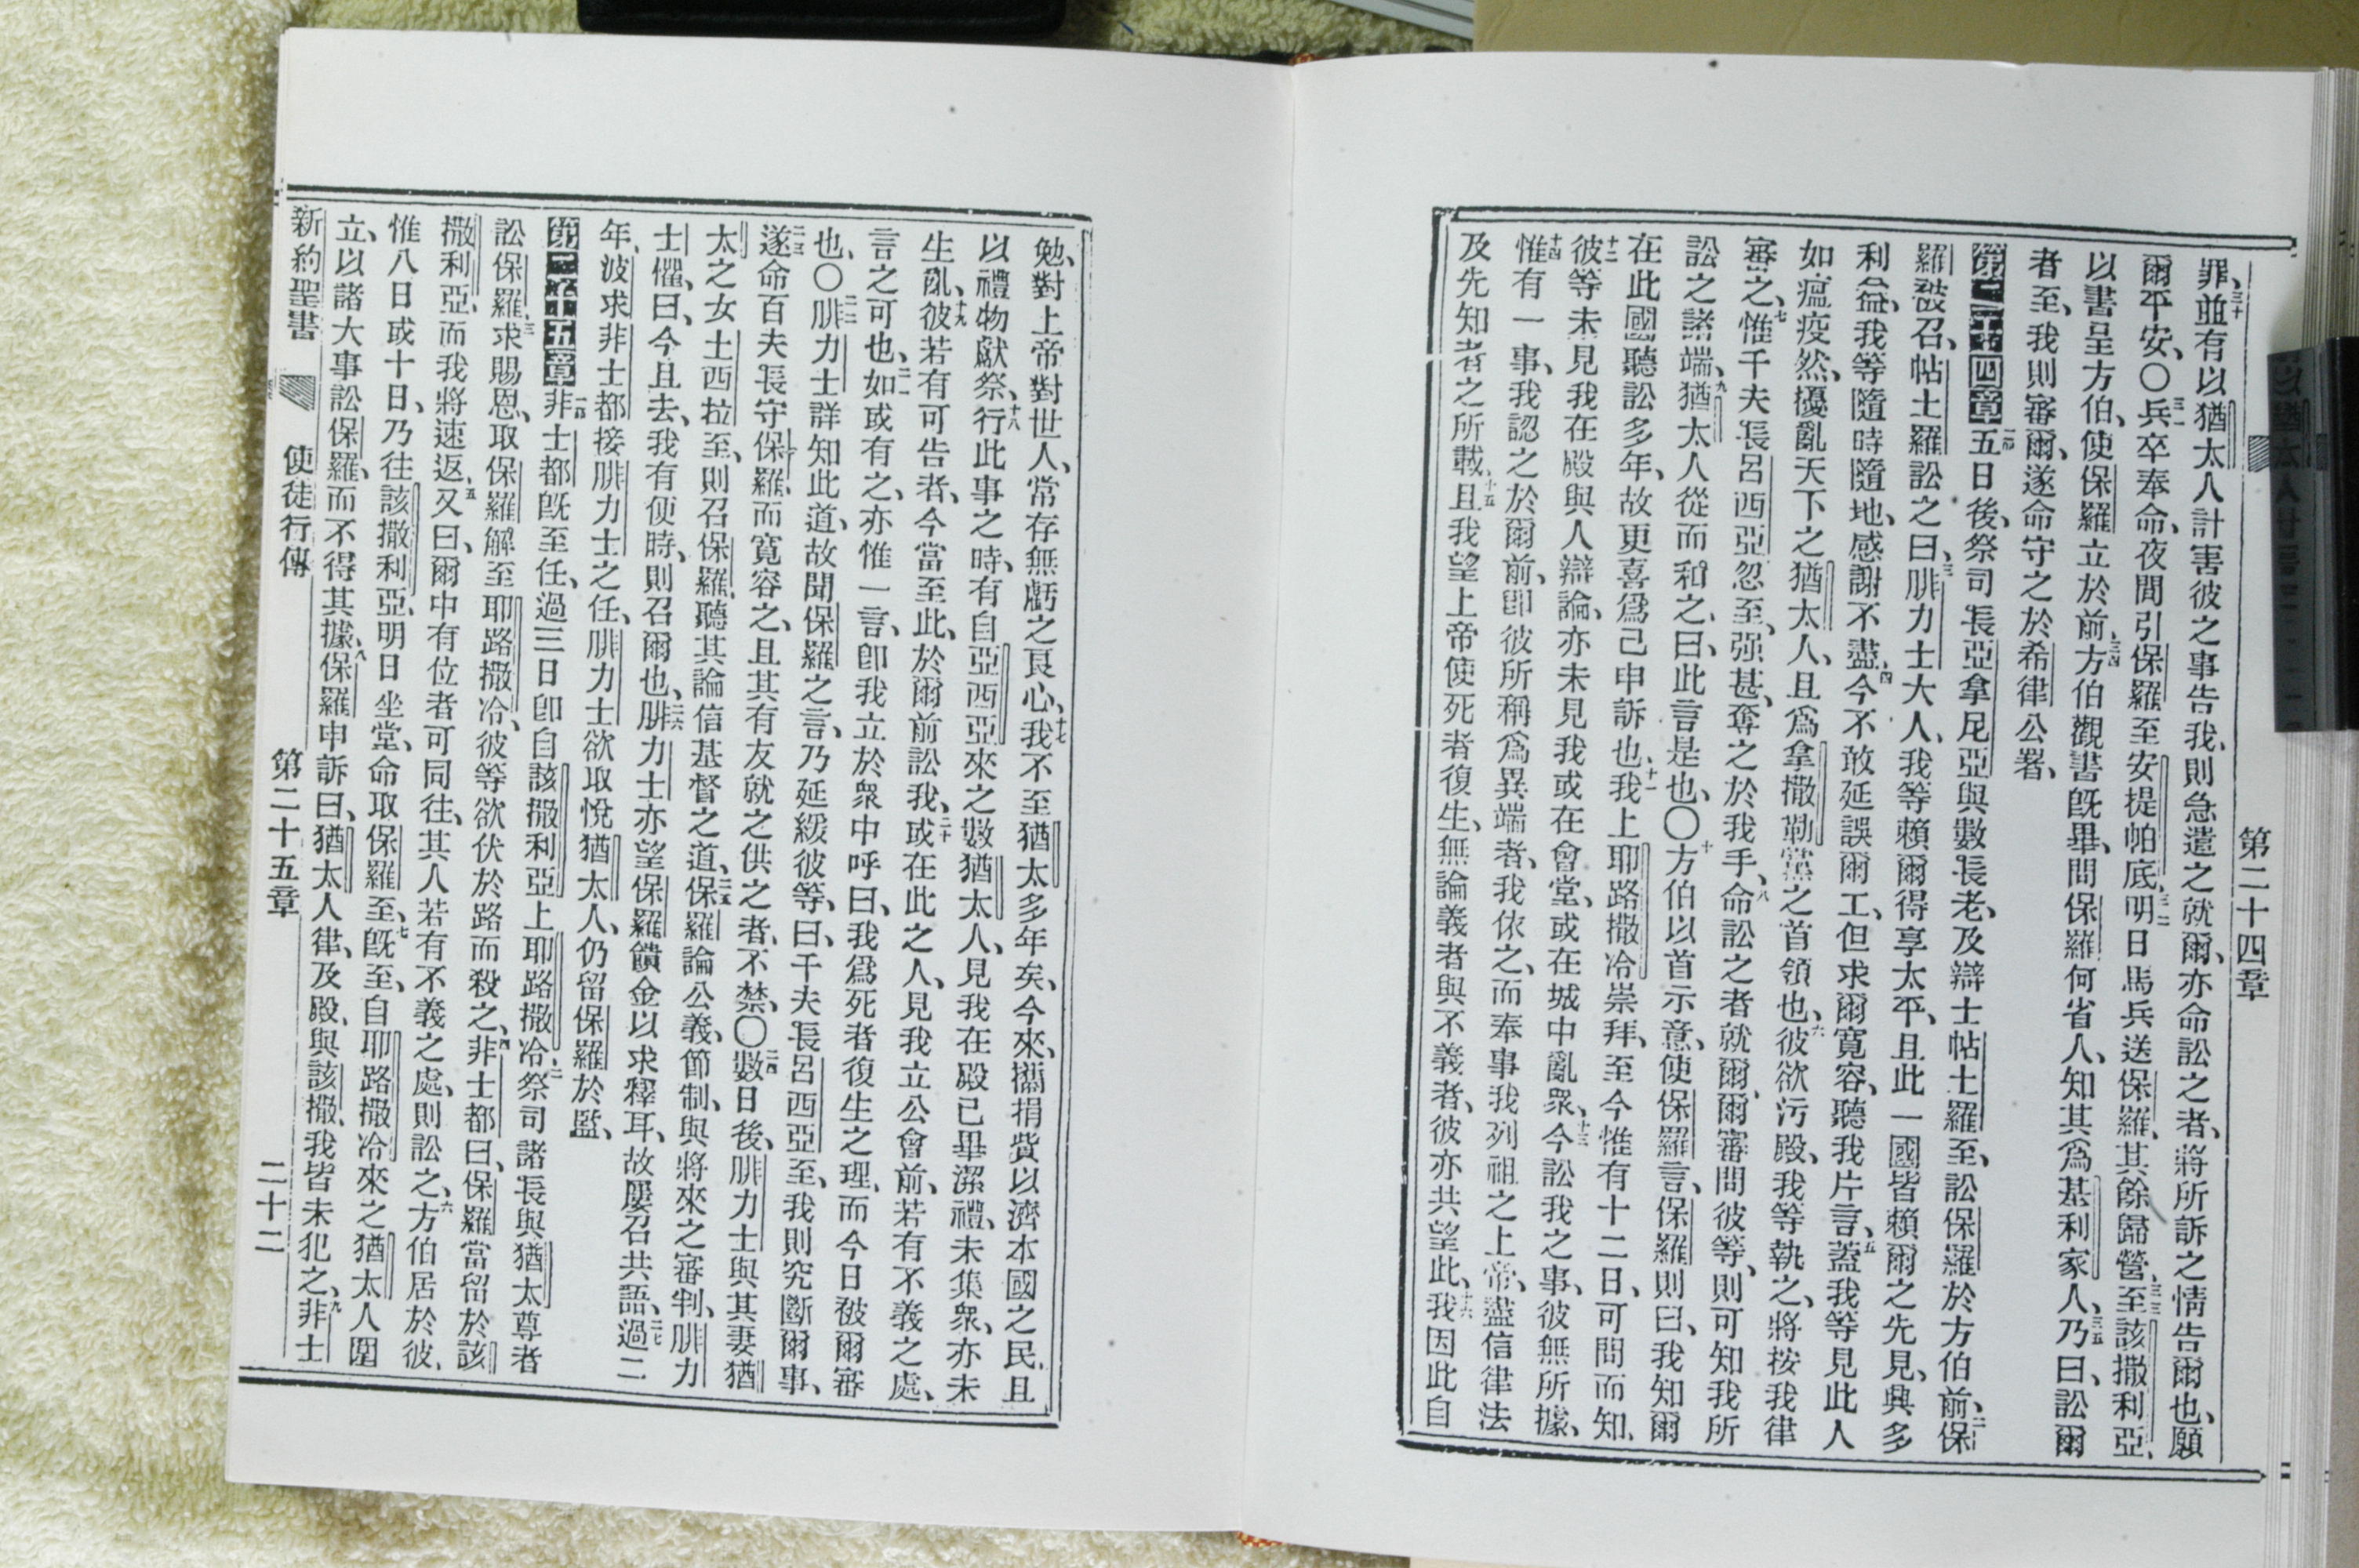 第二十四章
罪、三十並有以猶太人計害彼之事告我、則急遣之就爾、亦命訟之者、將所訴之情告爾也、願
爾平安、〇三一兵卒奉命、夜間引保羅至安提帕底、三二明日馬兵送保羅、其餘歸營、三三至該撒利亞、
以書呈方伯、使保羅立於前、三四方伯觀書旣畢、問保羅何省人、知其爲基利家人、三五乃曰、訟爾
者至、我則審爾、遂命守之於希律公署、
第二十四章 一五日後、祭司長亞拿尼亞與數長老、及辯士帖土羅至、訟保羅於方伯前、二保
羅被召、帖土羅訟之曰、三腓力士大人、我等賴爾得享太平、且此一國皆賴爾之先見、興多
利益、我等隨時隨地、感謝不盡、四今不敢延誤爾工、但求爾寬容、聽我片言、五蓋我等見此人
如瘟疫然、擾亂天下之猶太人、且爲拿撒勒黨之首領也、六彼欲污殿、我等執之、將按我律
審之、七惟千夫長呂西亞忽至、强甚、奪之於我手、八命訟之者就爾、爾審問彼等、則可知我所
訟之諸端、九猶太人從而和之、曰、此言是也、〇十方伯以首示意、使保羅言、保羅則曰、我知爾
在此國聽訟多年、故更喜爲己申訴也、十一我上耶路撒冷崇拜、至今惟有十二日、可問而知、
十二彼等未見我在殿與人辯論、亦未見我或在會堂、或在城中亂衆、十三今訟我之事、彼無所據、
十四惟有一事、我認之於爾前、卽彼所稱爲異端者、我依之、而奉事我列祖之上帝、盡信律法
及先知者之所載、十五且我望上帝使死者復生、無論義者與不義者、彼亦共望此、十六我因此自
勉、對上帝對世人、常存無虧之良心、十七我不至猶太多年矣、今來、攜捐貲以濟本國之民、且
以禮物獻祭、十八行此事之時、有自亞西亞來之數猶太人、見我在殿已畢潔禮、未集衆、亦未
生亂、十九彼若有可告者、今當至此、於爾前訟我、二十或在此之人、見我立公會前、若有不義之處、
言之可也、二一如或有之、亦惟一言、卽我立於衆中呼曰、我爲死者復生之理、而今日被爾審
也、〇二二腓力士詳知此道、故聞保羅之言、乃延緩彼等、曰、千夫長呂西亞至、我則究斷爾事、
二三遂命百夫長守保羅、而寬容之、且其有友就之供之者、不禁、〇二四數日後、腓力士與其妻猶
太之女士西拉至、則召保羅、聽其論信基督之道、二五保羅論公義、節制、與將來之審判、腓力
士懼、曰、今且去、我有便時、則召爾也、二六腓力士亦望保羅饋金以求釋耳、故屢召共語、二七過二
年、波求非士都接腓力士之任、腓力士欲取悅猶太人、仍留保羅於監、
第二十五章 一非士都旣至任、過三日卽自該撒利亞上耶路撒冷、二祭司諸長與猶太尊者
訟保羅、三求賜恩、取保羅解至耶路撒冷、彼等欲伏於路而殺之、四非士都曰、保羅當留於該
撒利亞、而我將速返、五又曰、爾中有位者可同往、其人若有不義之處、則訟之、六方伯居於彼、
惟八日或十日、乃往該撒利亞、明日坐堂、命取保羅至、七旣至、自耶路撒冷來之猶太人圍
立、以諸大事訟保羅、而不得其據、八保羅申訴曰、猶太人律、及殿、與該撒、我皆未犯之、九非士
新約聖書 使徒行傳 第二十五章 二十二